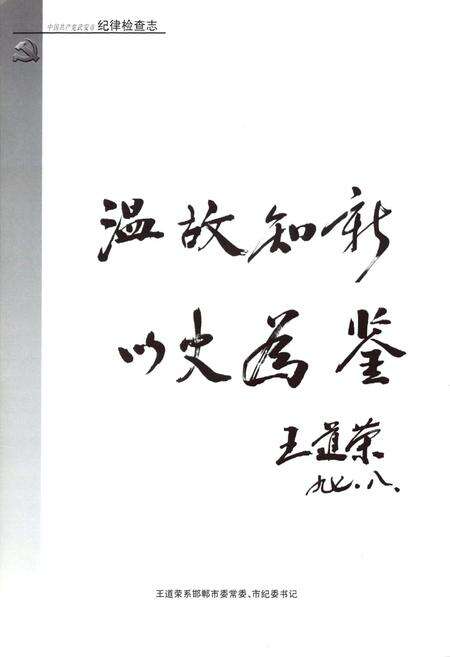 中国共产党武安市 纪律检查志
温故知新
以史为鉴
王道荣
九七.八.
王道荣系邯郸市委常委、市纪委书记